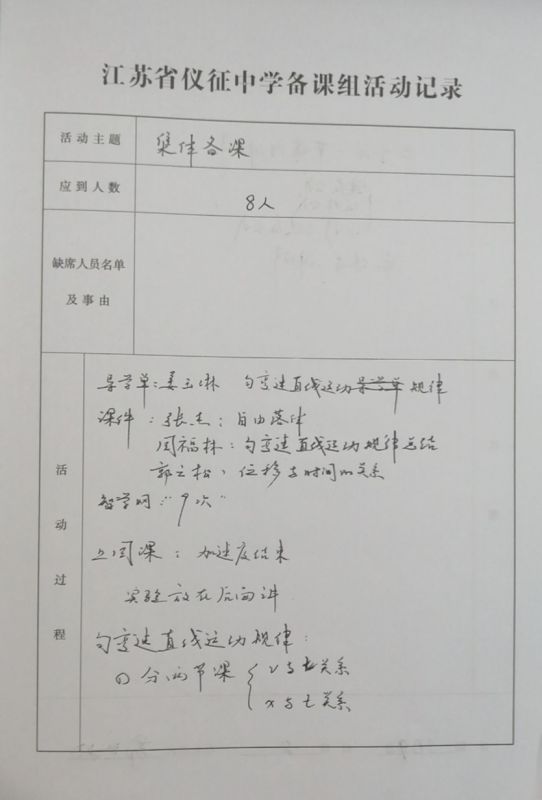 江苏省仪征中学备课组活动记录
活动主题 集体备课
应到人数 8人
缺席人员名单
及事由
活动过程
导学单：姜玉琳 匀变速直线运动导学单规律
课件：张志：自由落体
闵福林：匀变速直线运动规律总结
郭之松：位移与时间的关系
智学网："9次"
上周课：加速度结束
实验放在后面讲
匀变速直线运动规律：
分两节课 { v与t关系
x与t关系